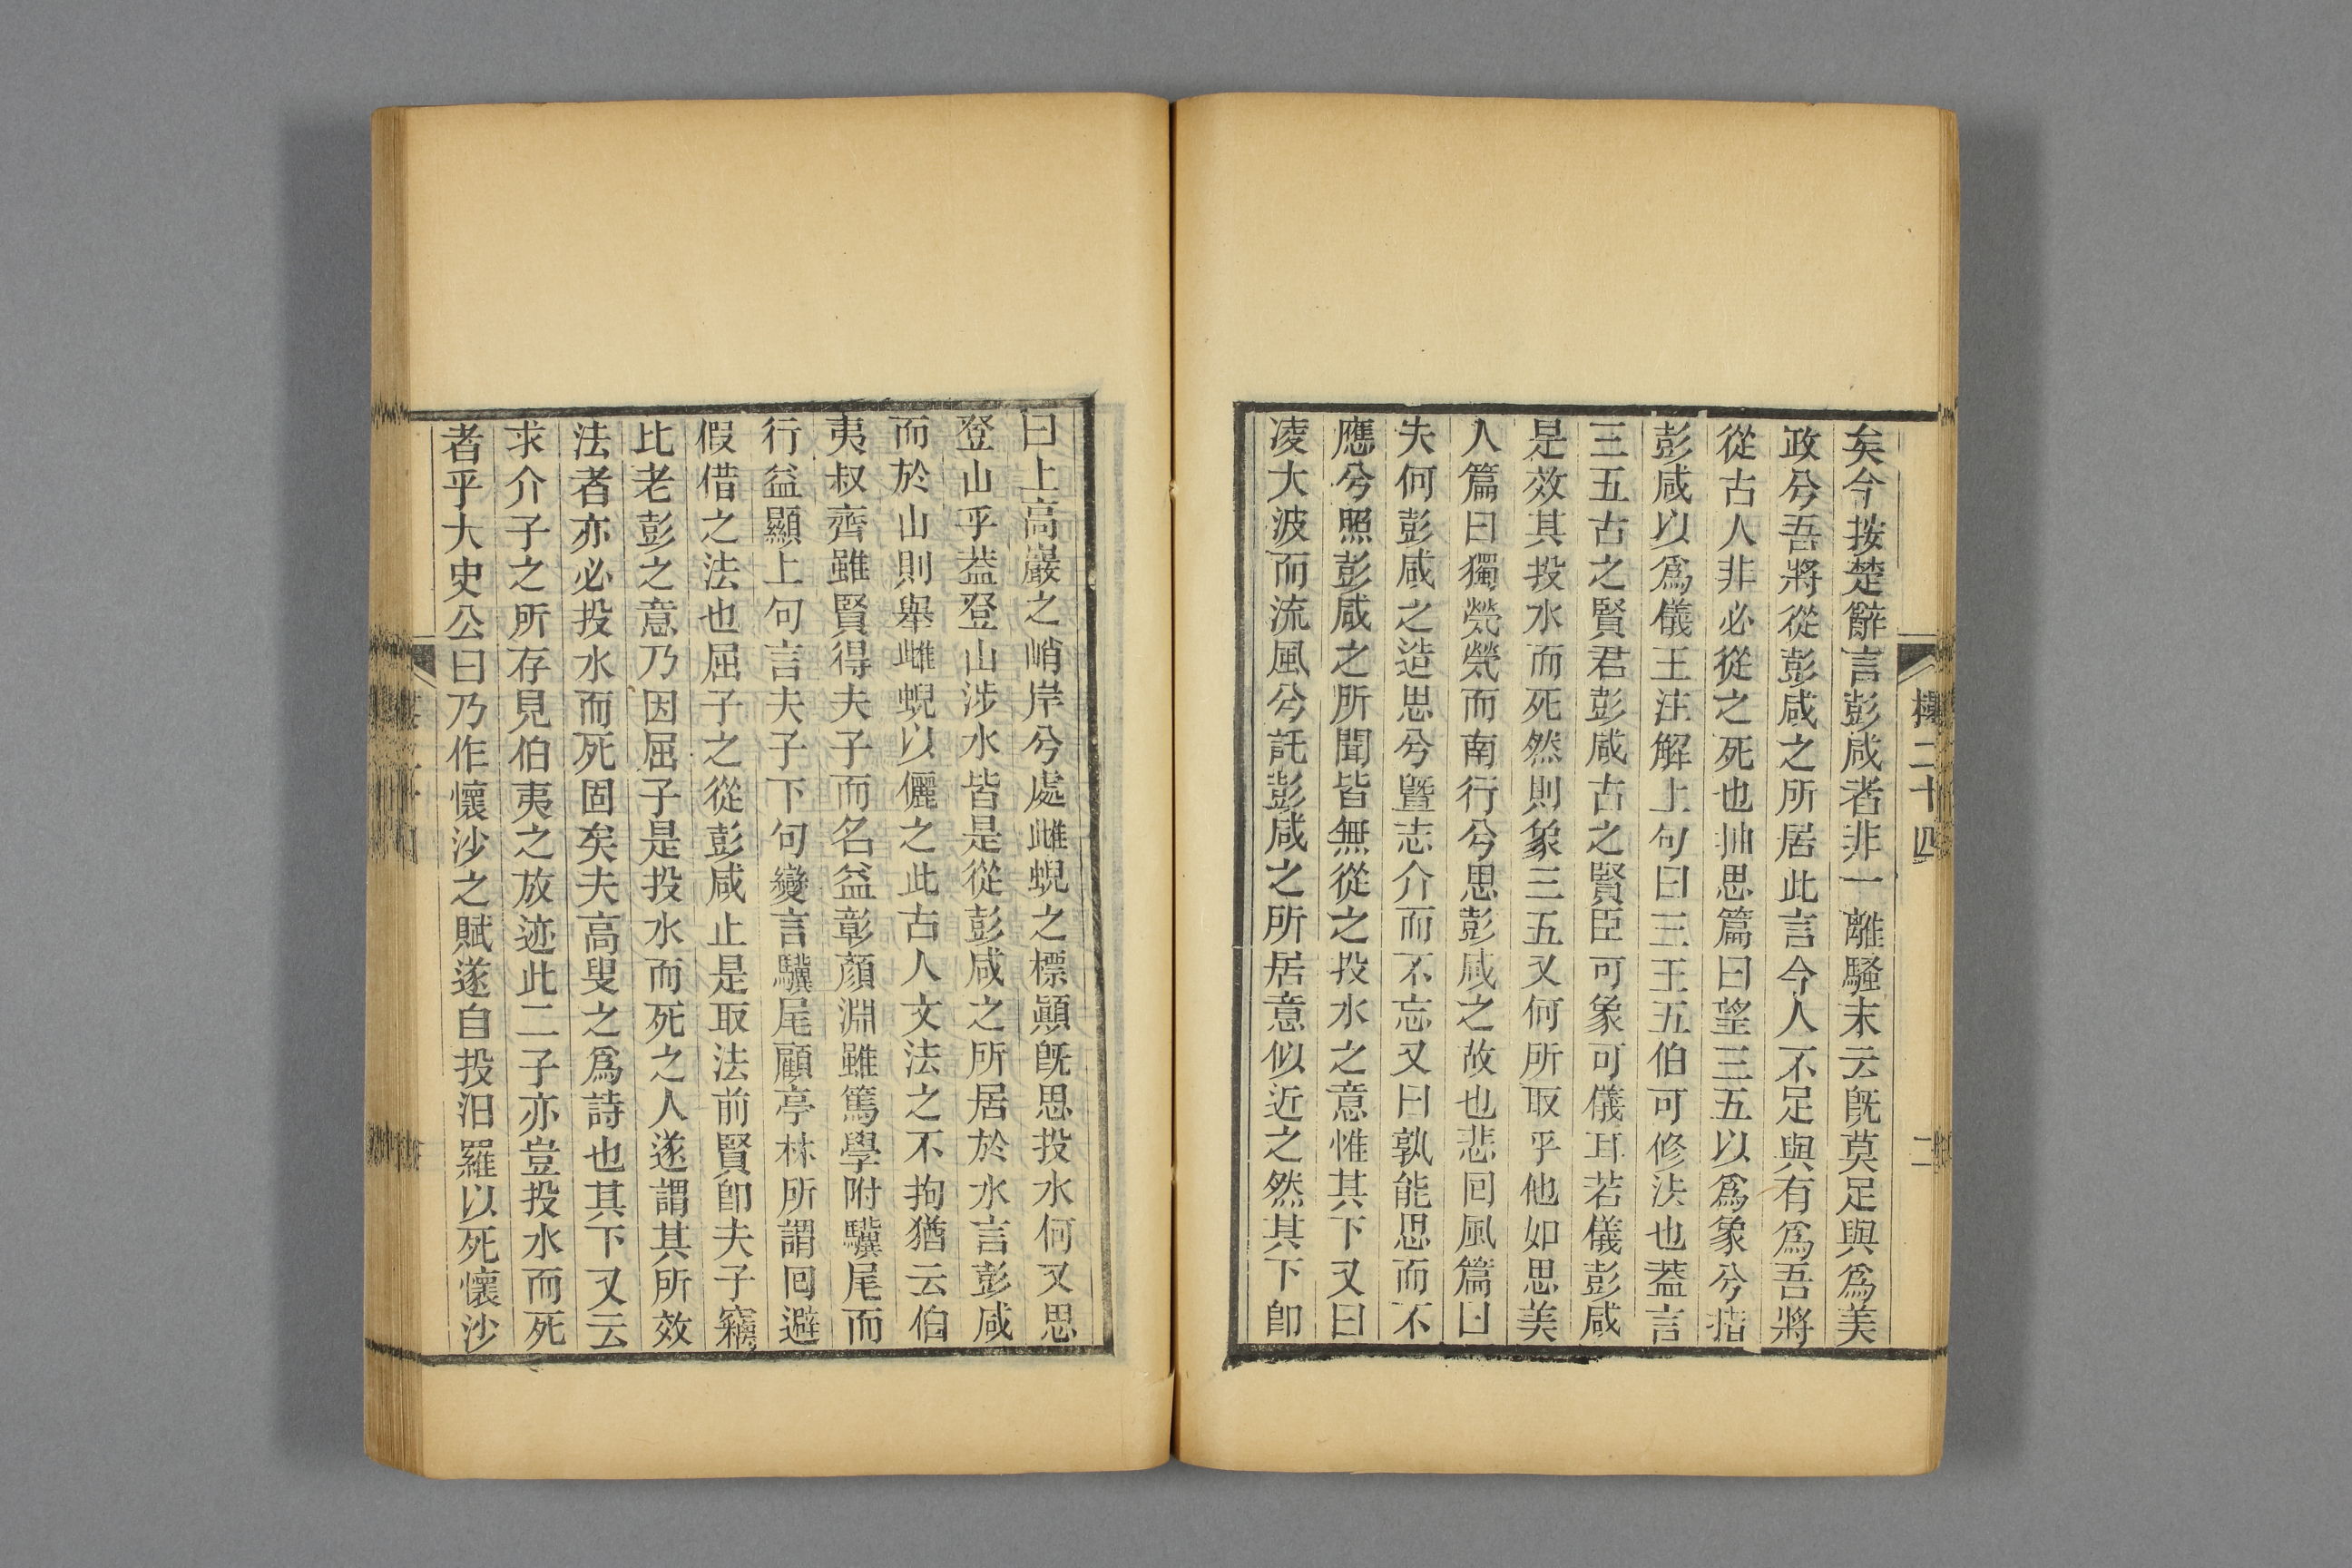 矣今按楚辭言彭咸者非一離騷末云旣莫足與爲美
政兮吾將從彭咸之所居此言今人不足與有爲吾將
從古人非必從之死也抽思篇曰望三五以爲象兮指
彭咸以爲儀王注解上句曰三王五伯可修法也葢言
三五古之賢君彭咸古之賢臣可象可儀耳若儀彭咸
是效其投水而死然則象三五又何所取乎他如思美
人篇曰獨煢煢而南行兮思彭咸之故也悲回風篇曰
夫何彭咸之造思兮曁志介而不忘又曰孰能思而不
應兮照彭咸之所聞皆無從之投水之意惟其下又曰
凌大波而流風兮託彭咸之所居意似近之然其下卽
二十四
二
曰上高巖之峭岸兮處雌蜺之標顚旣思投水何又思
登山乎葢登山涉水皆是從彭咸之所居於水言彭咸
而於山則舉雌蜺以儷之此古人文法之不拘猶云伯
夷叔齊雖賢得夫子而名益彰顏淵雖篤學附驥尾而
行益顯上句言夫子下句變言驥尾顧亭林所謂回避
假借之法也屈子之從彭咸止是取法前賢卽夫子竊
比老彭之意乃因屈子是投水而死之人遂謂其所效
法者亦必投水而死固矣夫高叟之爲詩也其下又云
求介子之所存見伯夷之放迹此二子亦豈投水而死
者乎大史公曰乃作懷沙之賦遂自投汨羅以死懷沙